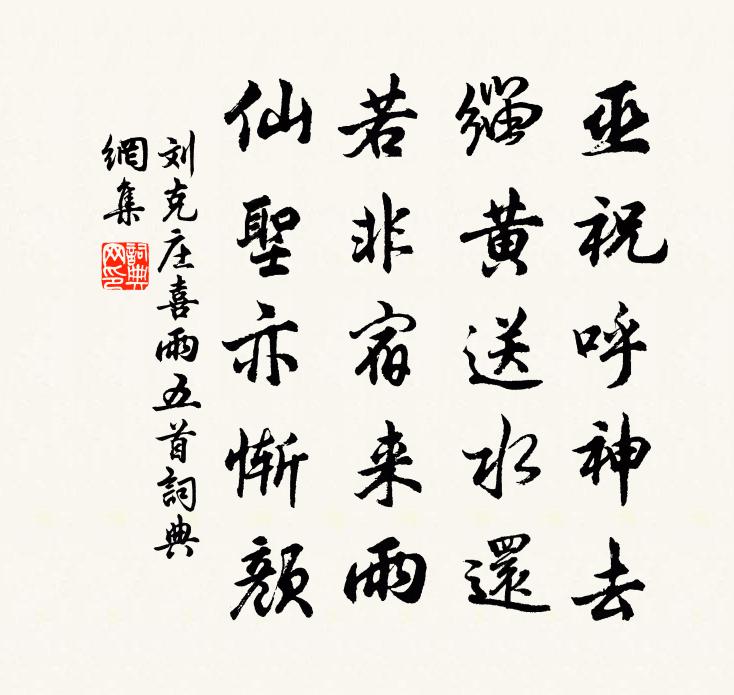 巫祝呼神去
緇黃送水還
若非宵来雨
仙聖亦慚顔
刘克庄喜雨五首詞典
網集
詞典
网印